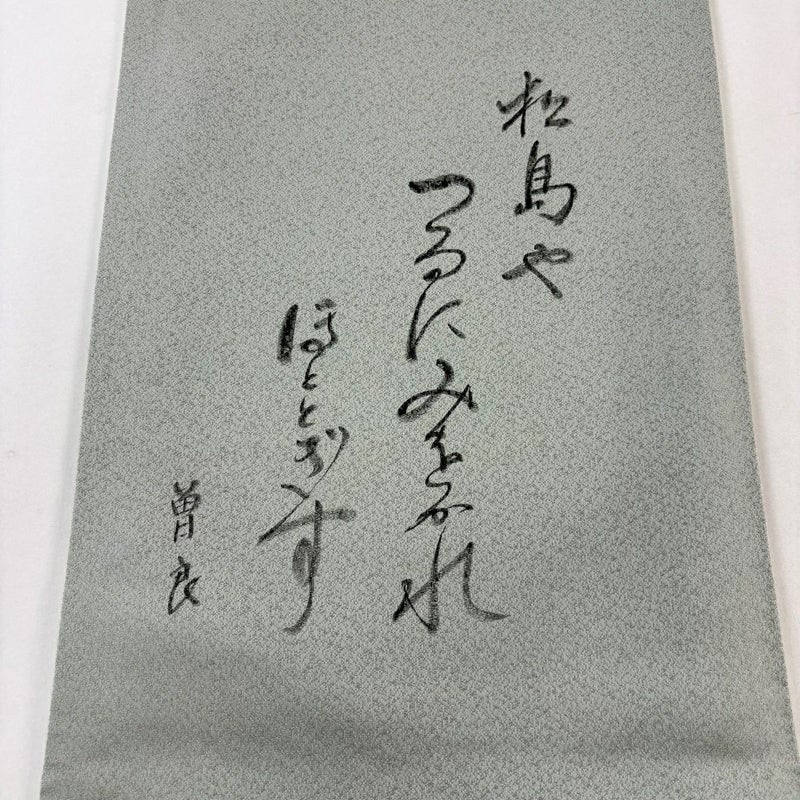 松島や
つるにみをかれ
ほとゝぎす
曽良